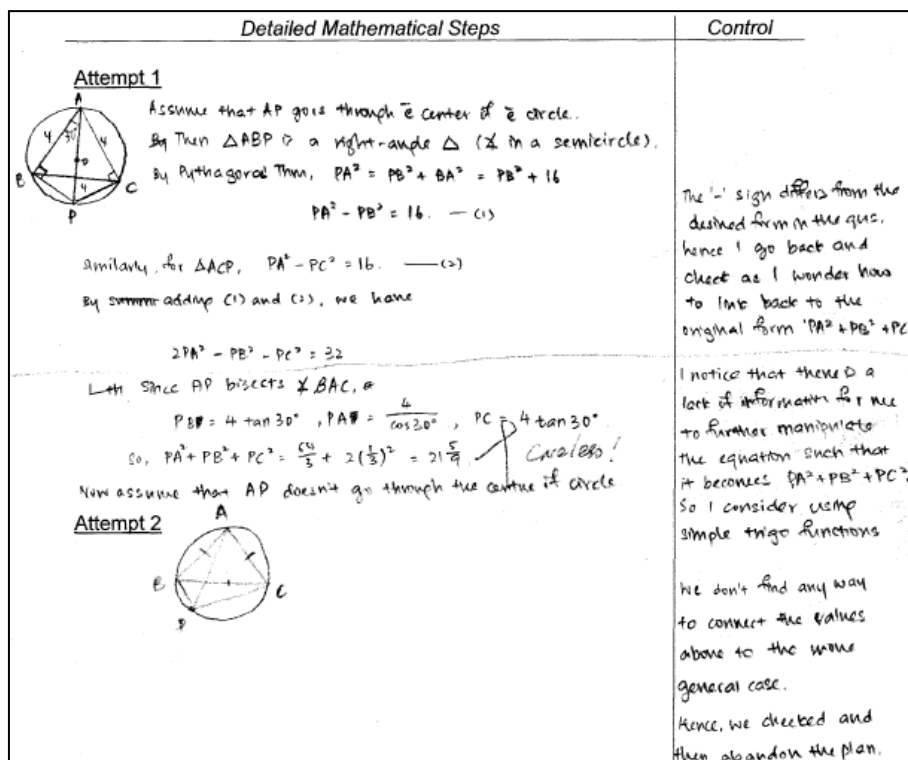 Detailed Mathematical Steps
Control
Attempt 1
A
4
30°
4
O
B
4
C
P
Assume that AP goes through ē center of ē circle.
By Then △ABP is a right-angle △ (∡ in a semicircle).
By Pythagoras Thm, PA² = PB² + BA² = PB² + 16
PA² - PB² = 16. — (1)
Similarly, for △ACP, PA² - PC² = 16. — (2)
By adding (1) and (2), we have
2PA² - PB² - PC² = 32
Since AP bisects ∡ BAC,
PB = 4 tan 30°, PA = 4/cos 30°, PC = 4 tan 30°
So, PA² + PB² + PC² = 64/3 + 2(1/3)² = 21 5/9
Careless!
Now assume that AP doesn't go through the centre of circle
Attempt 2
A
B
C
P
The '-' sign differs from the
desired form in the qus,
hence I go back and
check as I wonder how
to link back to the
original form 'PA² + PB² + PC
I notice that there is a
lack of information for me
to further manipulate
the equation such that
it becomes PA² + PB² + PC².
So I consider using
simple trigo functions
We don't find any way
to connect the values
above to the more
general case.
Hence, we checked and
then abandon the plan.